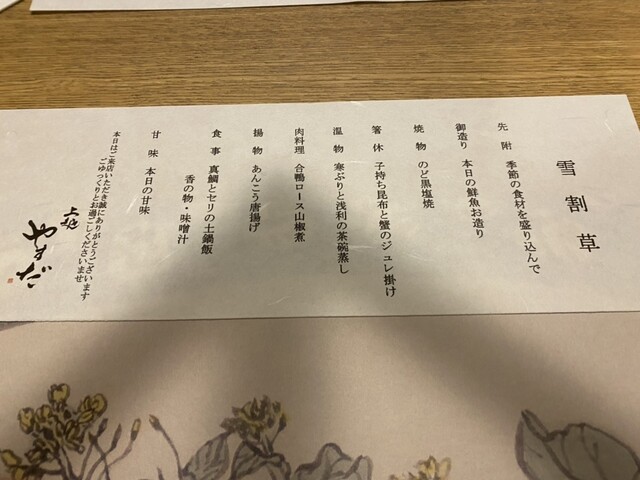 雪割草
先附 季節の食材を盛り込んで
御造り 本日の鮮魚お造り
焼物 のど黒塩焼
箸休 子持ち昆布と蟹のジュレ掛け
温物 寒ぶりと浅利の茶碗蒸し
肉料理 合鴨ロース山椒煮
揚物 あんこう唐揚げ
食事 真鯛とセリの土鍋飯
香の物・味噌汁
甘味 本日の甘味
本日はご来店いただき誠にありがとうございます
ごゆっくりとお過ごしくださいませ
やすだ